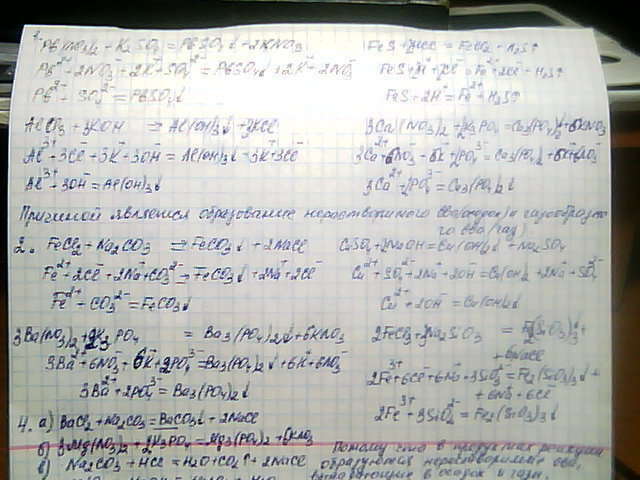 1. Pb(NO3)2 + K2SO4 = PbSO4↓ + 2KNO3
Pb²⁺ + 2NO3⁻ + 2K⁺ + SO4²⁻ = PbSO4↓ + 2K⁺ + 2NO3⁻
Pb²⁺ + SO4²⁻ = PbSO4↓
FeS + 2HCl = FeCl2 + H2S↑
FeS + 2H⁺ + 2Cl⁻ = Fe²⁺ + 2Cl⁻ + H2S↑
FeS + 2H⁺ = Fe²⁺ + H2S↑
AlCl3 + 3KOH = Al(OH)3↓ + 3KCl
Al³⁺ + 3Cl⁻ + 3K⁺ + 3OH⁻ = Al(OH)3↓ + 3K⁺ + 3Cl⁻
Al³⁺ + 3OH⁻ = Al(OH)3↓
3Ca(NO3)2 + 2K3PO4 = Ca3(PO4)2↓ + 6KNO3
3Ca²⁺ + 6NO3⁻ + 6K⁺ + 2PO4³⁻ = Ca3(PO4)2 + 6K⁺ + 6NO3⁻
3Ca²⁺ + 2PO4³⁻ = Ca3(PO4)2↓
Причиной является образование нерастворимого в-ва (осадок) и газообразно
го в-ва (газ).
2. FeCl2 + Na2CO3 = FeCO3↓ + 2NaCl
Fe²⁺ + 2Cl⁻ + 2Na⁺ + CO3²⁻ → FeCO3↓ + 2Na⁺ + 2Cl⁻
Fe²⁺ + CO3²⁻ = FeCO3↓
CuSO4 + 2NaOH = Cu(OH)2↓ + Na2SO4
Cu²⁺ + SO4²⁻ + 2Na⁺ + 2OH⁻ = Cu(OH)2 + 2Na⁺ + SO4²⁻
Cu²⁺ + 2OH⁻ = Cu(OH)2↓
3Ba(NO3)2 + 2K3PO4 = Ba3(PO4)2↓ + 6KNO3
3Ba²⁺ + 6NO3⁻ + 6K⁺ + 2PO4³⁻ = Ba3(PO4)2↓ + 6K⁺ + 6NO3⁻
3Ba²⁺ + 2PO4³⁻ = Ba3(PO4)2↓
2FeCl3 + 3Na2SiO3 = Fe2(SiO3)3↓ +
+ 6NaCl
2Fe³⁺ + 6Cl⁻ + 6Na⁺ + 3SiO3²⁻ = Fe2(SiO3)3↓ +
+ 6Na⁺ + 6Cl⁻
2Fe³⁺ + 3SiO3²⁻ = Fe2(SiO3)3↓
4. а) BaCl2 + Na2CO3 = BaCO3↓ + 2NaCl
б) 3Mg(NO3)2 + 2K3PO4 = Mg3(PO4)2 + 6KNO3
в) Na2CO3 + HCl = H2O + CO2↑ + 2NaCl
Потому что в продуктах реакции
образуются нерастворимые в-ва,
в осадок и газы.